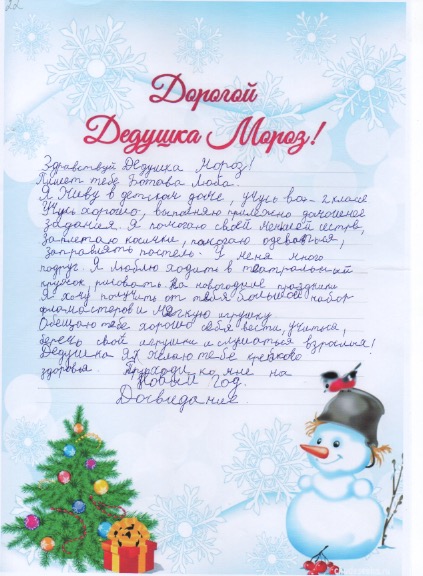 22
Дорогой
Дедушка Мороз!
Здравствуй Дедушка Мороз!
Пишет тебе Ботова Люба.
Я живу в детском доме, учусь во 2 класе
Учусь хорошо, выполняю прилежно домашнее
задания. Я помогаю своей меньшей сестре,
заплетаю косички, помогаю одеваться,
заправлять постель. У меня много
подруг. Я люблю ходить в театральный
кружок, рисовать. На новогодние праздники
Я хочу получить от тебя большой набор
фломастеров и мягкую игрушку
Обещаю тебе хорошо себя вести, учиться,
беречь свои игрушки и слушаться взрослых!
Дедушка Я желаю тебе крепкого
здоровья. Приходи ко мне на
Новый год.
Досвидание.